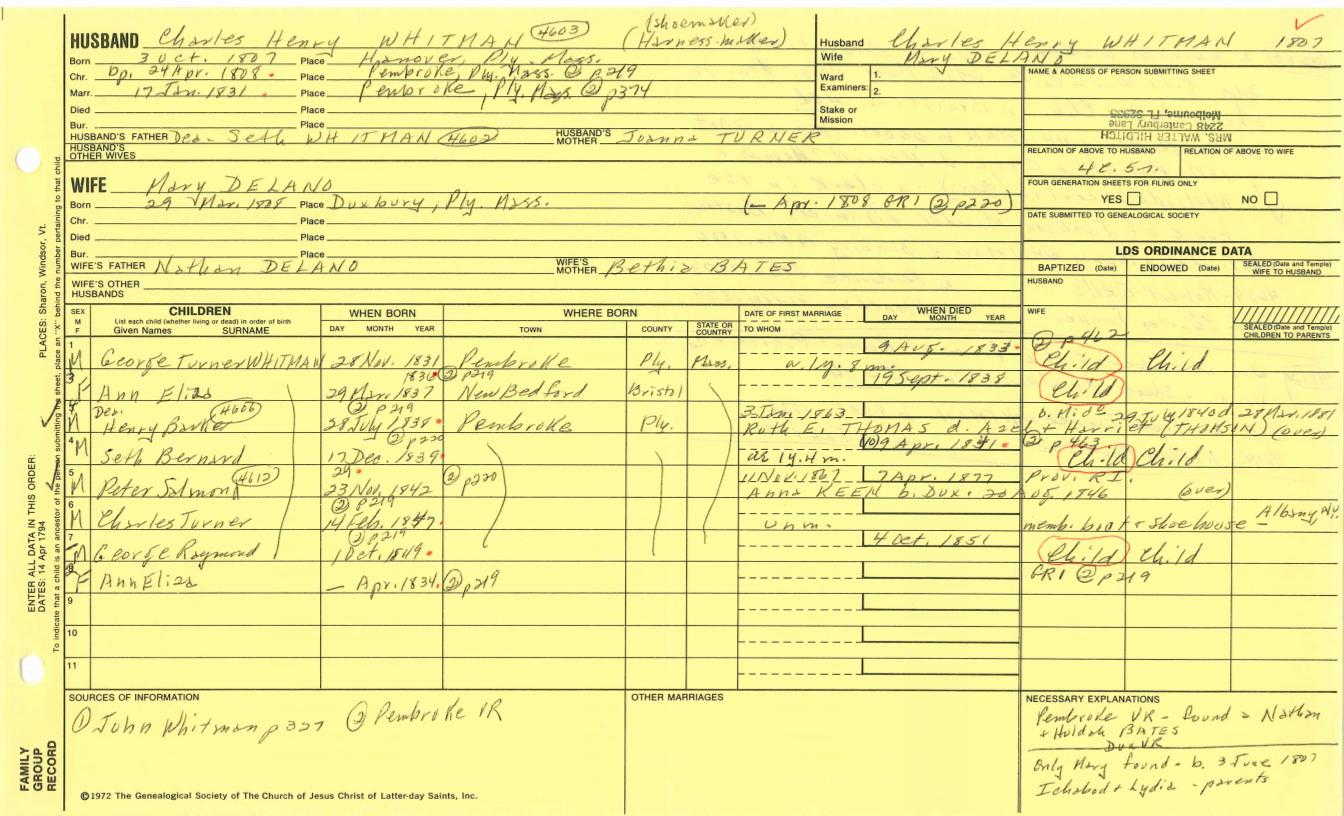 HUSBAND Charles Henry WHITMAN 4603 (shoemaker)
(Harness-maker)
Born 3 Oct. 1807 Place Hanover, Ply. Mass.
Chr. bp. 24 Apr. 1808 Place Pembroke, Ply. Mass. ② p219
Marr. 17 Jan. 1831 Place Pembroke, Ply. Mass. ② p374
Died Place
Bur. Place
HUSBAND'S FATHER Dea. Seth WHITMAN 4602 HUSBAND'S MOTHER Joanna TURNER
HUSBAND'S OTHER WIVES
WIFE Mary DELANO
Born 29 Mar. 1808 Place Duxbury, Ply. Mass. (— Apr. 1808 GR1 ② p220)
Chr. Place
Died Place
Bur. Place
WIFE'S FATHER Nathan DELANO WIFE'S MOTHER Bethia BATES
WIFE'S OTHER HUSBANDS
Husband Charles Henry WHITMAN 1807
Wife Mary DELANO
Ward Examiners: 1.
2.
Stake or Mission
NAME & ADDRESS OF PERSON SUBMITTING SHEET
MRS. WALTER HILDITCH
2248 Canterbury Lane
Melbourne, FL 32935
RELATION OF ABOVE TO HUSBAND RELATION OF ABOVE TO WIFE
FOUR GENERATION SHEETS FOR FILING ONLY
YES NO
DATE SUBMITTED TO GENEALOGICAL SOCIETY
LDS ORDINANCE DATA
BAPTIZED (Date) ENDOWED (Date) SEALED (Date and Temple) WIFE TO HUSBAND
HUSBAND
WIFE
SEALED (Date and Temple) CHILDREN TO PARENTS
SEX M F CHILDREN WHEN BORN WHERE BORN DATE OF FIRST MARRIAGE WHEN DIED
List each child (whether living or dead) in order of birth
Given Names SURNAME DAY MONTH YEAR TOWN COUNTY STATE OR COUNTRY TO WHOM DAY MONTH YEAR
1 9 Aug. 1833 ② p462
M George Turner WHITMAN 28 Nov. 1831 Pembroke Ply. Mass. a. 1y. 8m. Child Child
3 1836 ② p219 19 Sept. 1838
F Ann Eliza 29 Mar. 1837 New Bedford Bristol Child
Dea. 4606 ② p219 3 Jan. 1863 b. Midd 29 July 1840 d. 28 Mar. 1881
M Henry Barker 28 July 1838 Pembroke Ply. Ruth E. THOMAS d. Azel + Harriet (THOMSON) (over)
4 M ② p220 9 Apr. 1841 ② p463
Seth Bernard 17 Dec. 1839 ae 1y. 4m. Child Child
5 4612 24 ② p220 11 Nov. 1867 7 Apr. 1877 Prov. RI.
M Peter Salmond 23 Nov. 1842 Anna KEEN b. Dux. 20 Aug. 1846 (over)
6 ② p219 Albany, NY.
M Charles Turner 14 Feb. 1847 unm. memb. boot + shoe house —
7 ② p219 4 Oct. 1851
M George Raymond 1 Oct. 1849 Child Child
F Ann Eliza — Apr. 1834 ② p219 GR1 ② p219
9
10
11
SOURCES OF INFORMATION
① John Whitman p 327 ② Pembroke VR
OTHER MARRIAGES
NECESSARY EXPLANATIONS
Pembroke VR - found a Nathan
+ Huldah BATES
Dux VR
Only Mary found - b. 3 June 1807
Ichabod + Lydia - parents
©1972 The Genealogical Society of The Church of Jesus Christ of Latter-day Saints, Inc.
FAMILY GROUP RECORD
ENTER ALL DATA IN THIS ORDER:
DATES: 14 Apr 1794
PLACES: Sharon, Windsor, Vt.
To indicate that a child is an ancestor of the person submitting the sheet, place an "X" behind the number pertaining to that child.